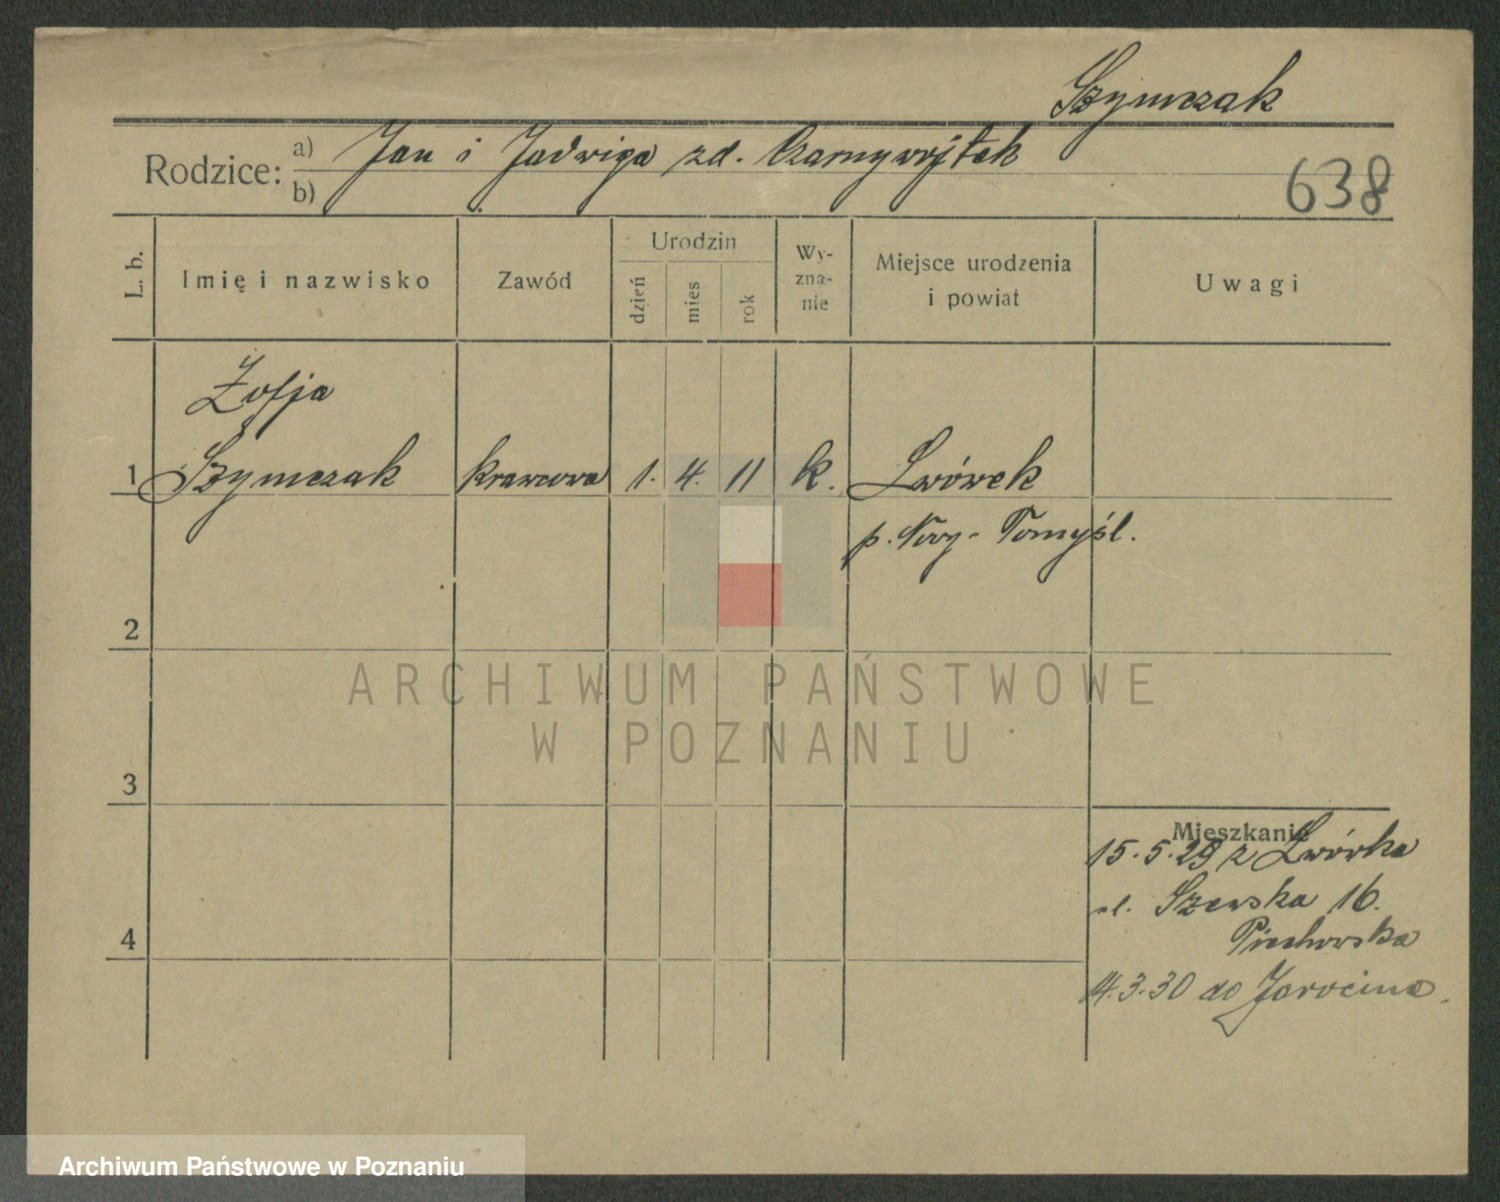 Szymczak
Rodzice: a) Jan i Jadwiga zd. Czarnywojtek
b)
638
L. b.
Imię i nazwisko
Zawód
Urodzin
dzień
mies
rok
Wy-
zna-
nie
Miejsce urodzenia
i powiat
Uwagi
Zofja
1 Szymczak krawcowa 1. 4. 11 k. Lwówek
p. Nowy-Tomyśl.
2
ARCHIWUM PAŃSTWOWE
W POZNANIU
3
Mieszkanie
15.5.29 z Lwówka
ul. Szewska 16.
Piechowska
4
14.3.30 do Jarocina.
Archiwum Państwowe w Poznaniu